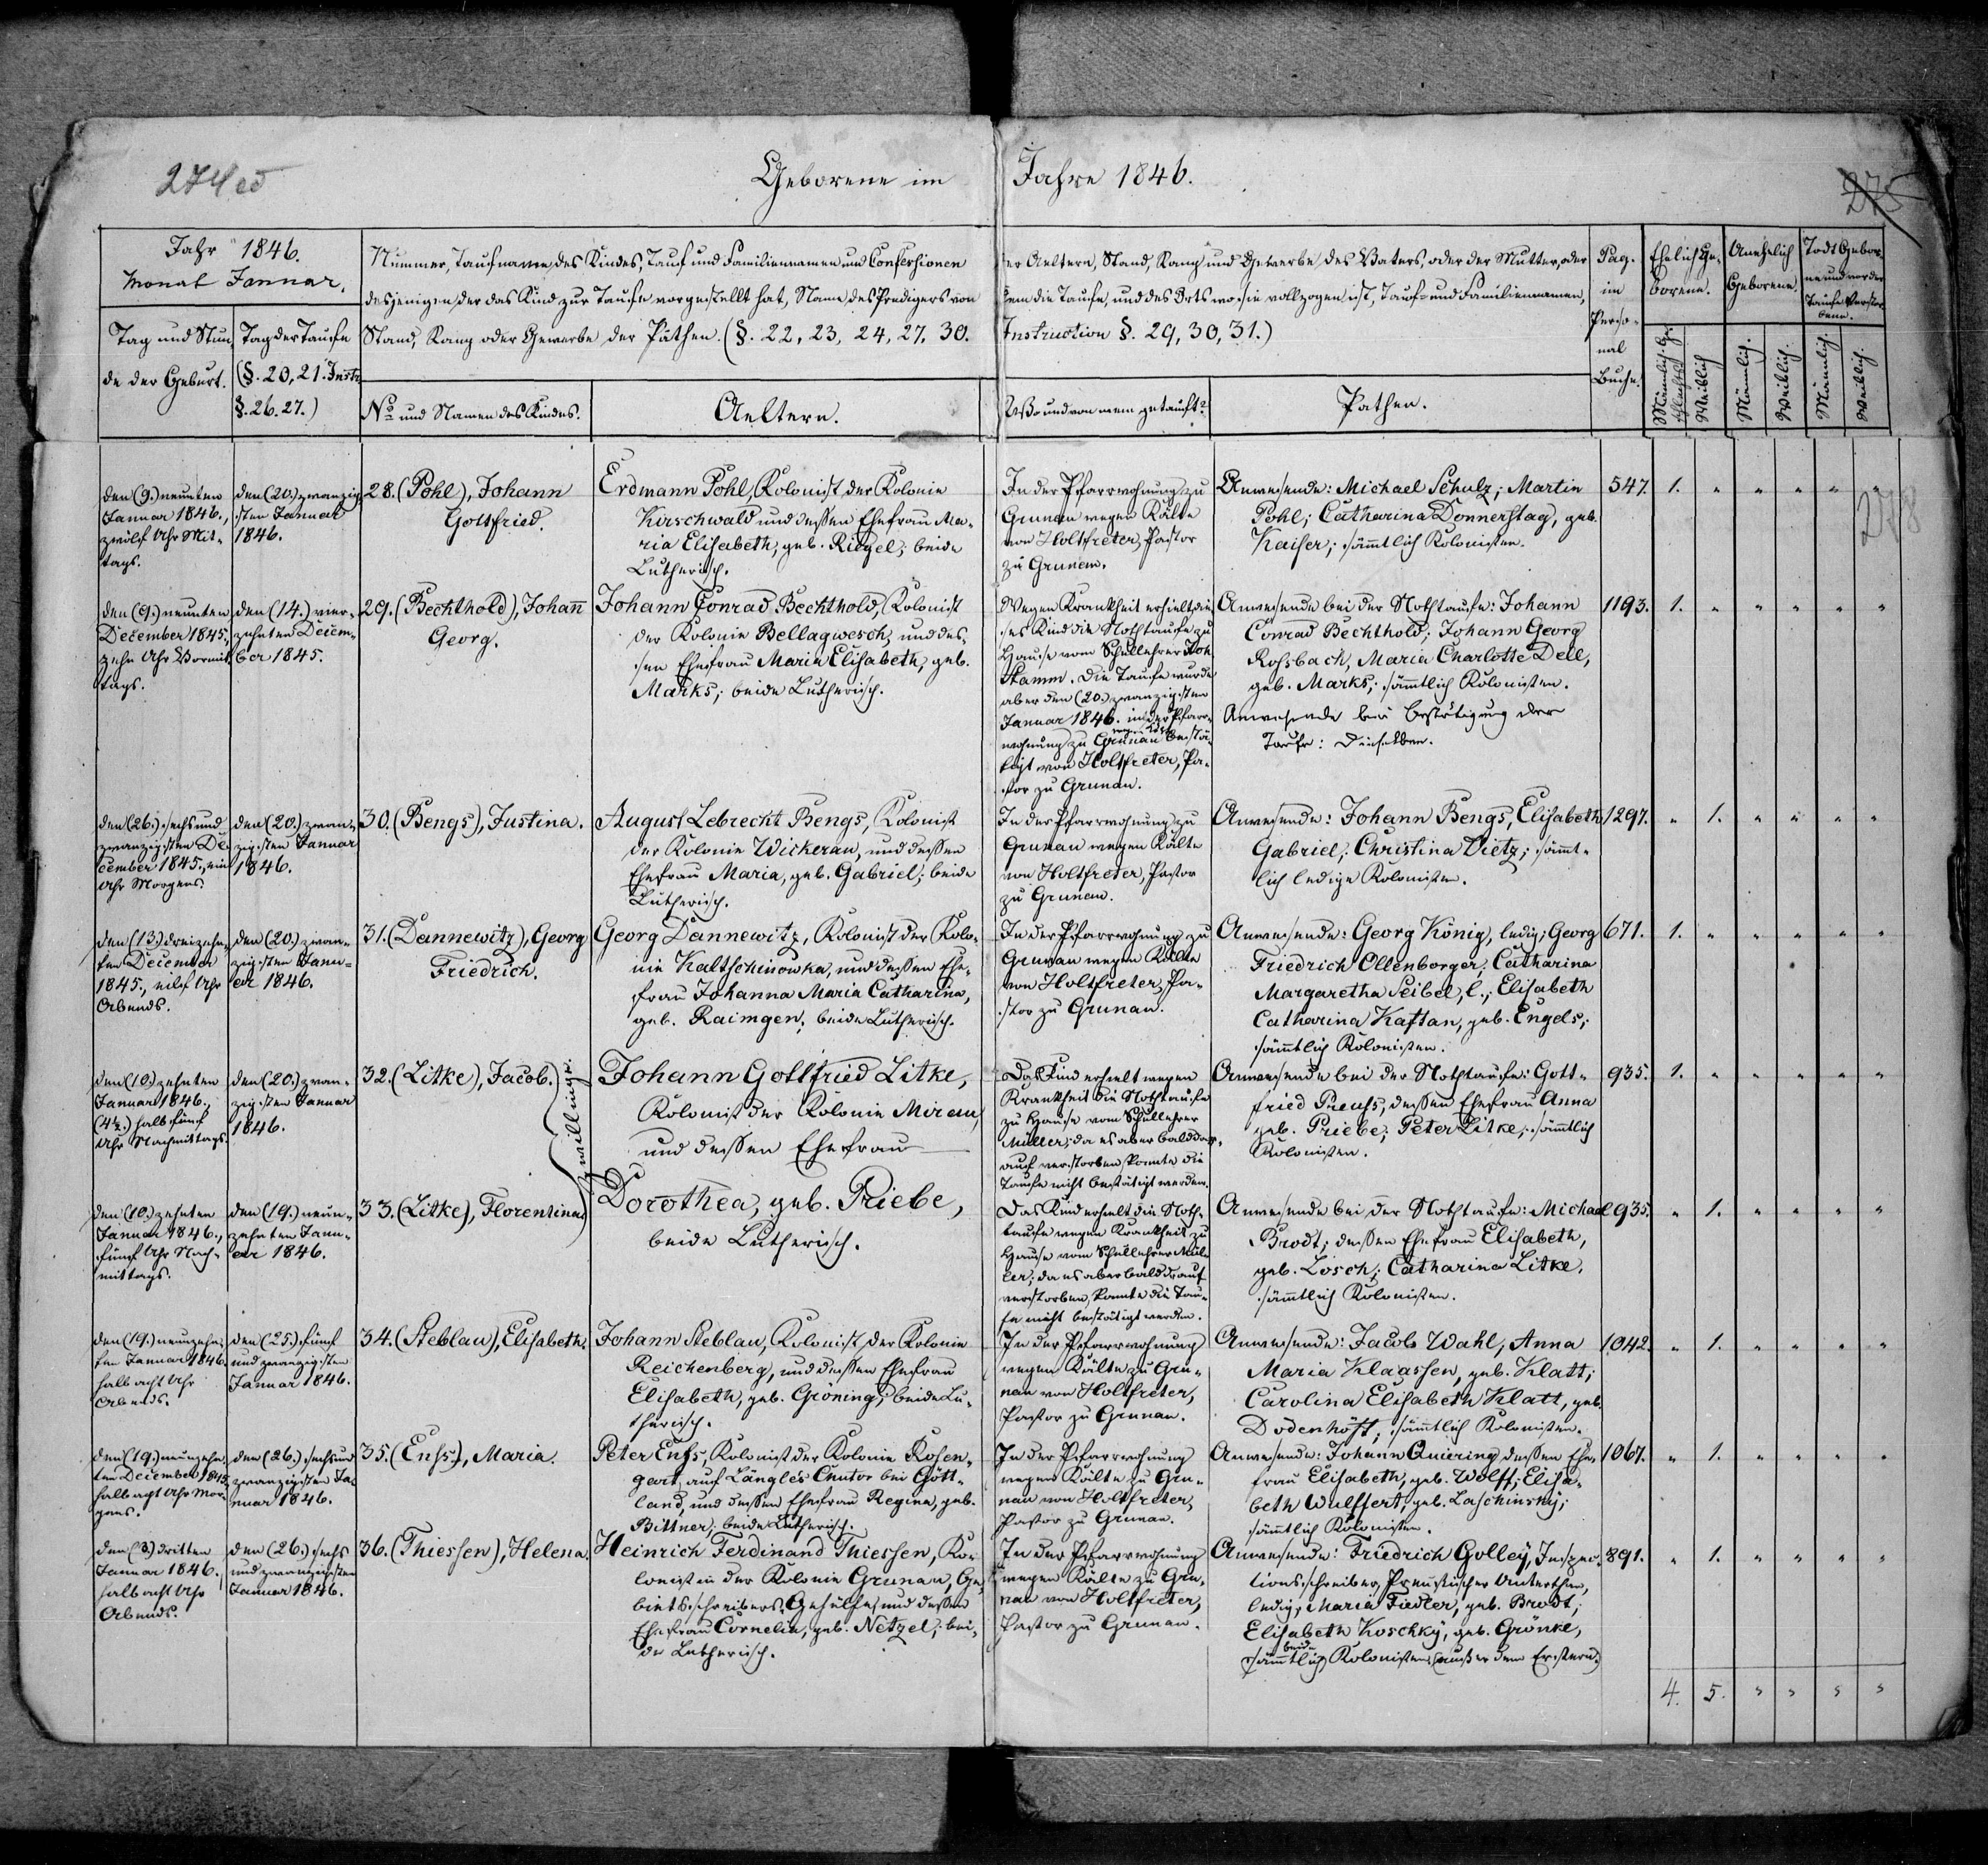 274
Geborene im Jahre 1846.
275
278
Jahr 1846.
Monat Januar.
Tag und Stun-
de der Geburt.
Tag der Taufe
(§. 20, 21. Instr.
§. 26. 27.)
Nummer, Taufname des Kindes, Tauf und Familiennamen und Confessionen
der Aeltern, Stand, Rang und Gewerbe des Vaters, oder der Mutter, oder
desjenigen der das Kind zur Taufe vorgestellt hat, Name des Predigers von
dem die Taufe, und des Orts wo sie vollzogen ist, Tauf- und Familiennamen,
Stand, Rang oder Gewerbe der Pathen. (§. 22, 23, 24, 27, 30.
Instruction §. 29, 30, 31.)
No und Namen des Kindes.
Aeltern.
Wo und von wem getauft?
Pathen.
Pag.
im
Perso-
nal
Buche.
Ehelich Ge-
borene.
Unehelich
Geborene.
Todt Gebor-
ne und vor der
Taufe Verstor-
bene.
Männlich
Weiblich
Männlich.
Weiblich.
Männlich
Weiblich.
den (9.) neunten
Januar 1846.,
zwölf Uhr Mit-
tags.
den (20.) zwanzig-
sten Januar
1846.
28. (Pohl), Johann
Gottfried.
Erdmann Pohl, Kolonist der Kolonie
Kirschwald und dessen Ehefrau Ma-
ria Elisabeth, geb. Riegel; beide
Lutherisch.
In der Pfarrwohnung zu
Grunau wegen Kälte
von Holtfreter, Pastor
zu Grunau.
Anwesende: Michael Schulz; Martin
Pohl; Catharina Donnerstag, geb.
Kaiser; sämmtlich Kolonisten.
547. 1. " " " " "
den (9.) neunten
December 1845.,
zehn Uhr Vormit-
tags.
den (14.) vier-
zehnten Decem-
ber 1845.
29. (Bechthold), Johann
Georg.
Johann Conrad Bechthold, Kolonist
der Kolonie Bellagwesch, und des-
sen Ehefrau Maria Elisabeth, geb.
Marks; beide Lutherisch.
Wegen Krankheit erhielt die-
ses Kind die Nothtaufe zu
Hause vom Schullehrer Joh.
Stamm. Die Taufe wurde
aber den (20.) zwanzigsten
Januar 1846. in der Pfarr-
wohnung zu Grunau bestä-
tigt von Holtfreter, Pa-
stor zu Grunau.
Anwesende bei der Nothtaufe: Johann
Conrad Bechthold; Johann Georg
Rossbach, Maria Charlotte Dell,
geb. Marks; sämmtlich Kolonisten.
Anwesende bei Bestätigung der
Taufe: Dieselben.
1193. 1. " " " " "
den (26.) sechs und
zwanzigsten De-
cember 1845., ein
Uhr Morgens.
den (20.) zwan-
zigsten Januar
1846.
30. (Bengs), Justina.
August Lebrecht Bengs, Kolonist
der Kolonie Wickerau, und dessen
Ehefrau Maria, geb. Gabriel; beide
Lutherisch.
In der Pfarrwohnung zu
Grunau wegen Kälte
von Holtfreter, Pastor
zu Grunau.
Anwesende: Johann Bengs, Elisabeth
Gabriel; Christina Dietz; sämmt-
lich ledige Kolonisten.
1297. " 1. " " " "
den (13.) dreizehn-
ten December
1845., eilf Uhr
Abends.
den (20.) zwan-
zigsten Janu-
ar 1846.
31. (Dannewitz), Georg
Friedrich.
Georg Dannewitz, Kolonist der Kolo-
nie Kaltschinowka, und dessen Ehe-
frau Johanna Maria Catharina,
geb. Raimgen; beide Lutherisch.
In der Pfarrwohnung zu
Grunau wegen Kälte
von Holtfreter, Pa-
stor zu Grunau.
Anwesende: Georg König, ledig; Georg
Friedrich Ollenborger; Catharina
Margaretha Seibel, l.; Elisabeth
Catharina Kaftan, geb. Engels;
sämmtlich Kolonisten.
671. 1. " " " " "
den (10.) zehnten
Januar 1846.,
(4½.) halb fünf
Uhr Nachmittags.
den (20.) zwan-
zigsten Januar
1846.
32. (Litke), Jacob.
Zwillinge.
Johann Gottfried Litke,
Kolonist der Kolonie Mirau,
und dessen Ehefrau
Dorothea, geb. Priebe,
beide Lutherisch.
Das Kind erhielt wegen
Krankheit die Nothtaufe
zu Hause vom Schullehrer
Müller; da es aber bald dar-
auf verstorben, konnte die
Taufe nicht bestätigt werden.
Anwesende bei der Nothtaufe: Gott-
fried Preuss, dessen Ehefrau Anna
geb. Priebe; Peter Litke; sämmtlich
Kolonisten.
935. 1. " " " " "
den (10.) zehnten
Januar 1846.,
fünf Uhr Nach-
mittags.
den (19.) neun-
zehnten Janu-
ar 1846.
33. (Litke), Florentina
Das Kind erhielt die Noth-
taufe wegen Krankheit zu
Hause vom Schullehrer Mül-
ler; da es aber bald drauf
verstorben, konnte die Tau-
fe nicht bestätigt werden.
Anwesende bei der Nothtaufe: Michael
Brodt; dessen Ehefrau Elisabeth,
geb. Losch; Catharina Litke,
sämmtlich Kolonisten.
935. " 1. " " " "
den (19.) neunzehn-
ten Januar 1846.
halb acht Uhr
Abends.
den (25.) fünf
und zwanzigsten
Januar 1846.
34. (Steblau), Elisabeth.
Johann Steblau, Kolonist der Kolonie
Reichenberg, und dessen Ehefrau
Elisabeth, geb. Gröning; beide Lu-
therisch.
In der Pfarrwohnung
wegen Kälte zu Gru-
nau von Holtfreter,
Pastor zu Grunau.
Anwesende: Jacob Wahl, Anna
Maria Klaassen, geb. Klatt;
Carolina Elisabeth Klatt, geb.
Dodenhöft; sämmtlich Kolonisten.
1042. " 1. " " " "
den (19.) neunzehn-
ten December 1845
halb acht Uhr Mor-
gens.
den (26.) sechs und
zwanzigsten Ja-
nuar 1846.
35. (Enss), Maria.
Peter Enss, Kolonist der Kolonie Rosen-
gart, auf Längles Chutor bei Gött-
land, und dessen Ehefrau Regina, geb.
Bittner; beide Lutherisch.
In der Pfarrwohnung
wegen Kälte zu Gru-
nau von Holtfreter,
Pastor zu Grunau.
Anwesende: Johann Quiering dessen Ehe-
frau Elisabeth, geb. Wolff; Elisa-
beth Wulffert, geb. Laschinsky;
sämmtlich Kolonisten.
1067. " 1. " " " "
den (3.) dritten
Januar 1846.
halb acht Uhr
Abends.
den (26.) sechs
und zwanzigsten
Januar 1846.
36. (Thiessen), Helena.
Heinrich Ferdinand Thiessen, Ko-
lonist in der Kolonie Grunau, Ge-
bietsschreibers Gehülfe, und dessen
Ehefrau Cornelia, geb. Netzel; bei-
de Lutherisch.
In der Pfarrwohnung
wegen Kälte zu Gru-
nau von Holtfreter,
Pastor zu Grunau.
Anwesende: Friedrich Golley, Inspec-
tionsschreiber, Preussischer Unterthan,
ledig; Maria Fiedler, geb. Brodt;
Elisabeth Koschky, geb. Grönke,
beide
sämmtlich Kolonisten (ausser dem Erstern.)
891. " 1. " " " "
4. 5. " " " "